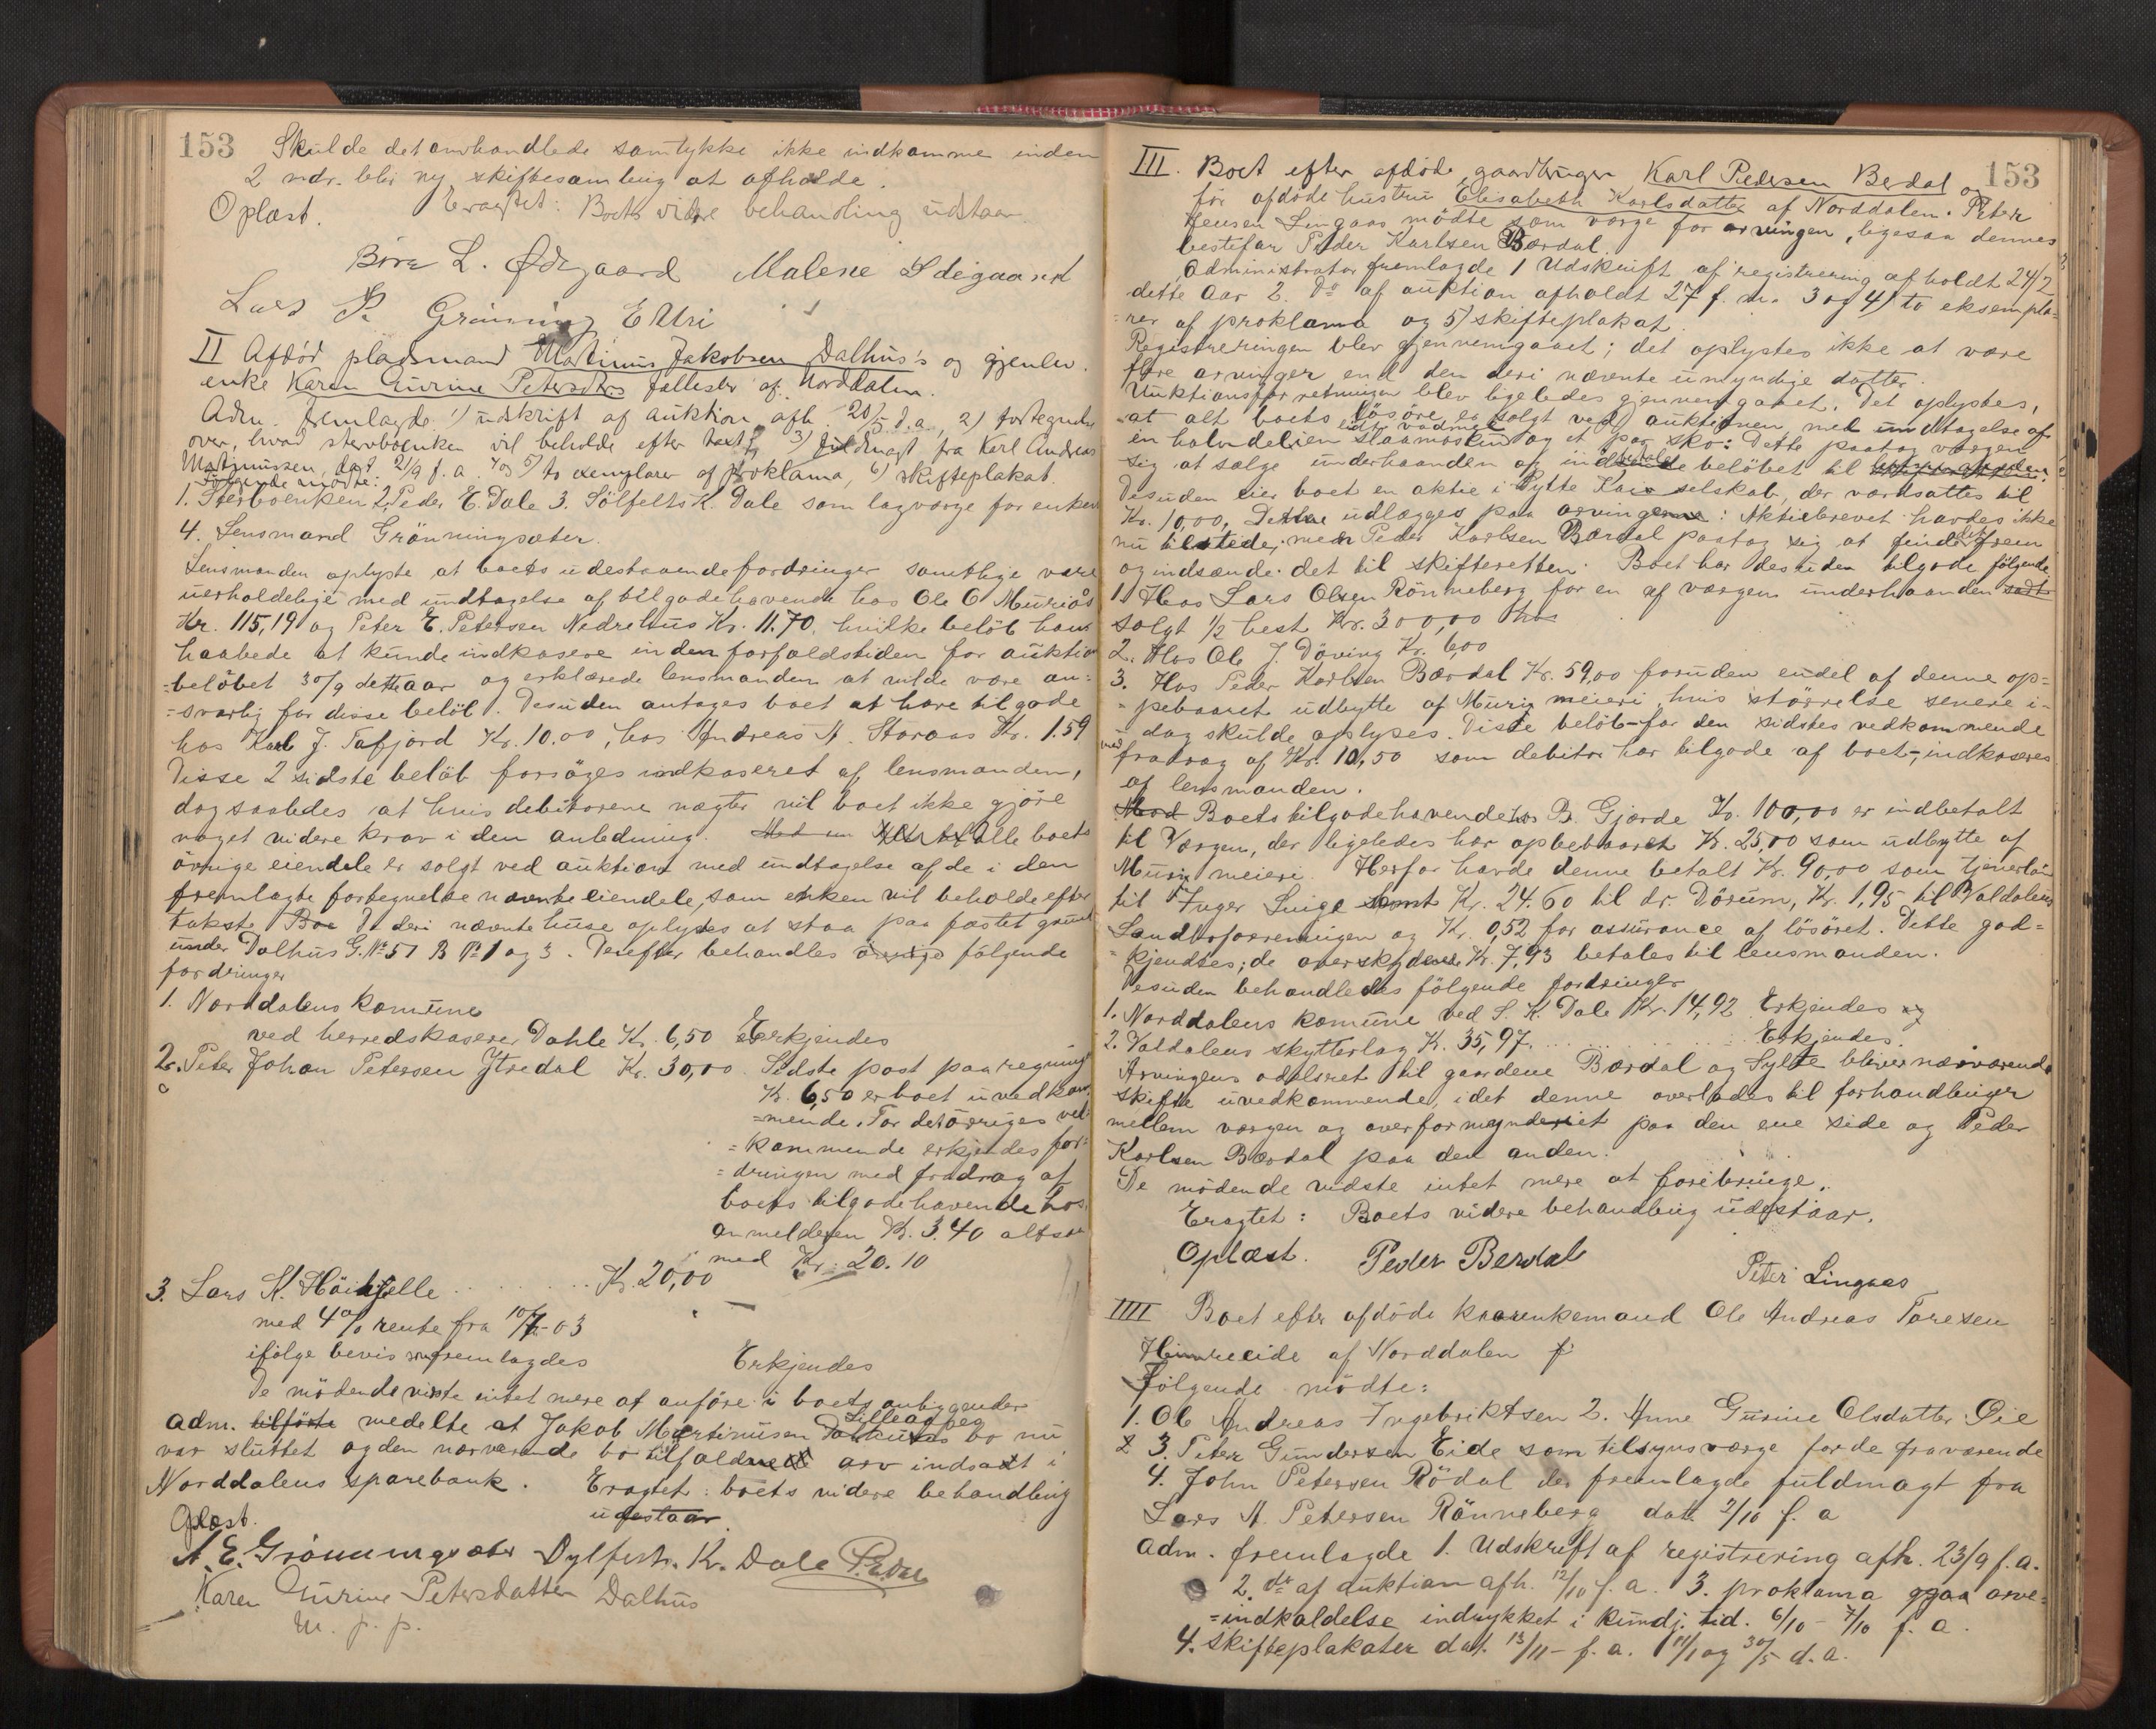 153 Skulde det omhandlede samtykke ikke indkomme inden
2 mdr. blir ny skiftesamling at afholde.
Oplæst. Eragtet: Boets videre behandling udstaar.
Børre L. Ødegaard Malene Ødegaard
Lars P. Grönning E Uri
II Afdød pladsmand Martinus Jakobsen Dalhus's og gjenlev.
enke Karen Gurine Petersdtrs fællesbo af Norddalen.
Adm. fremlagde 1) udskrift af auktion afh. 20/5 d.a., 2) fortegnelse
over, hvad stervboenken vil beholde efter taxt, 3) fuldmagt fra Karl Andreas
Martinussen, dat. 21/9 f. a. 4 og 5) to exemplarer af proklama, 6) skifteplakat.
Følgende mødte:
1. Sterboenken 2. Peder E. Dale 3. Sölfest K. Dale som lagværge for enken
4. Lensmand Grönningsæter.
Lensmanden oplyste at boets udestaaende fordringer samtlige være
uerholdelige med undtagelse af tilgodehavende hos Ole O Muriås
Kr. 115,19 og Peter E. Petersen Nedrehus Kr. 11.70, hvilke beløb han
haabede at kunde indkasere inden forfaldstiden for auktio
=beløbet 30/9 dette aar og erklærede lensmanden at vilde være an=
=svarlig for disse beløb. Desuden antages boet at have tilgode
hos Karl J. Tafjord Kr. 10.00, hos Andreas A. Storaas Kr. 1.59
Disse 2 sidste beløb forsøges indkaseret af lensmanden,
dog saaledes at hvis debitorene nægter vil boet ikke gjöre
noget videre krav i den anledning. Alle boets
övrige eiendele er solgt ved auktion med undtagelse af de i den
fremlagte fortegnelse nævnte eiendele, som enken vil beholde efter
takste De deri nævnte huse oplyses at staa paa fæstet grund
under Dalhus G. No 51 B No 1 og 3. Derefter behandles følgende
fordringer
1. Norddalens komune
ved herredskaserer Dahle Kr. 6,50 Erkjendes
2. Peter Johan Petersen Ytredal Kr. 30,00. Sidste post paa regning
Kr. 6,50 er boet uvedkom
=mende. For det övriges ved
=kommende erkjendes for=
=dringen med fradrag af
boets tilgodehavende hos
anmelderen Kr. 3.40 altsaa
med Kr. 20.10
3. Lars K. Höihjelle . . . . . . . . Kr. 20,00
med 4% rente fra 10/7-03
ifølge bevis som fremlagdes Erkjendes
De mödende viste intet mere at anføre i boets anliggender
Adm. tilförte medelte at Jakob Martinusen Lilleaas bo nu
var sluttet og den nærværende bo tilfaldne arv indsat i
Norddalens sparebank. Eragtet: boets videre behandling
Oplæst. udestaar
A. E. Grönningsæter Sylfest K. Dale P. E. Dale
Karen Gurine Petersdatter Dalhus
m. p. p.
III. Boet efter afdöde gaardbruger Karl Pedersen Berdal og 153
för afdöde hustru Elisabeth Karlsdatter af Norddalen. Peter
Jensen Lingaas mödte som værge for arvingen, ligesaa dennes
bestefar Peder Karlsen Bærdal.
Administrator fremlagde 1 Udskrift af registrering afholdt 24/2
dette aar 2. do af auktion afholdt 27 f. m. 3 og 4) to eksempla=
=rer af proklama og 5) skifteplakat.
Registreringen blev gjennemgaaet; det oplystes ikke at være
flere arvinger end den deri nævnte umyndige datter.
Auktionsforretningen blev ligeledes gjennemgaaet. Det oplystes,
at alt boets lösöre er solgt ved auktionen, med undtagelse af
en halvdelien slaamaskine og et par sko: Dette paatog værgen
sig at sælge underhaanden og indbetale belöbet til
Desuden eier boet en aktie i Sylte Kaiselskab, der værdsattes til
Kr. 10,00. Dette udlægges paa arvingen: Aktiebrevet havdes ikke
nu tilstede, men Peder Karlsen Bærdal paatog sig at finde det frem
og indsende det til skifteretten. Boet har desuden tilgode følgende
1. Hos Lars Olsen Rönneberg for en af værgen underhaanden
solgt 1/2 hest Kr. 300,00
2. Hos Ole J. Döving Kr. 6,00
3. Hos Peder Karlsen Bærdal Kr. 59,00 foruden endel af denne op=
=pebaaret udbytte af Muri meieri hvis störrelse senere i=
=dag skulde oplyses. Disse belöb-for den sidstes vedkommende
med fradrag af Kr. 10,50 som debitor har tilgode af boet-, indkaseres
af lensmanden.
Boets tilgodehavende hos B. Gjærde Kr. 100,00 er indbetalt
til Værgen, der ligeledes har opbebaaret Kr. 25,00 som udbytte af
Muri meieri. Herfor havde denne betalt Kr. 90,00 som tjenerlön
til Inger Linge samt Kr. 24.60 til dr. Dörum, Kr. 1,95 til Valdalens
Landhandel og Kr. 0,52 for assurance af lösöret. Dette god=
=kjendtes; de overskydende Kr. 7,93 betales til lensmanden.
Desuden behandledes fölgende fordringer
1. Norddalens komune ved S. K. Dale Kr. 14,92 Erkjendes
2. Valdalens skytterlag K. 35,97. . . . . . . . . Erkjendes.
Arvingens odelsret til gaardene Bærdal og Sylte bliver nærværende
skifte uvedkommende, idet denne overlades til forhandlinger
mellem værgen og overformynderiet paa den ene side og Peder
Karlsen Bærdal paa den anden.
De mödende vidste intet mere at forebringe.
Eragtet: Boets videre behandling udestaar.
Oplæst. Peder Berdal
Peter Lingaas
IIII Boet efter afdöde kaarenkemand Ole Andreas Toresen
Heimreeide af Norddalen
Fölgende mödte:
1. Ole Andreas Ingebriktsen 2. Anne Gurine Olsdatter Oie
3. Peter Gundersen Eide som tilsynsværge for de fraværende
4. John Petersen Rödal der fremlagde fuldmagt fra
Lars A. Petersen Rönneberg dat. 2/10 f. a
Adm. fremlagde 1. Udskrift af registrering afh. 23/9 f. a.
2. do af auktion afh. 12/10 f. a. 3. proklama ogsaa arve=
=indkaldelse indrykket i kundj. tid. 6/10 - 7/10 f. a.
4. skifteplakater dat. 13/11- f. a. 11/1 og 30/5 d. a.